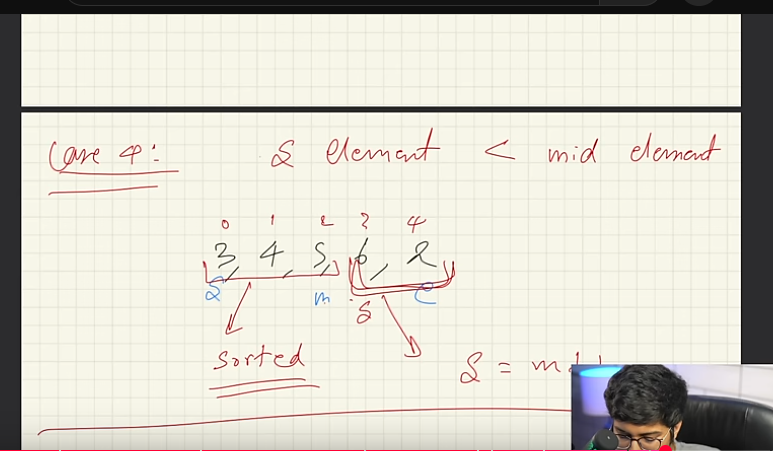 Case 4: S element < mid element
0 1 2 3 4
3, 4, 5, 6, 2
S m E
S
Sorted
S = m